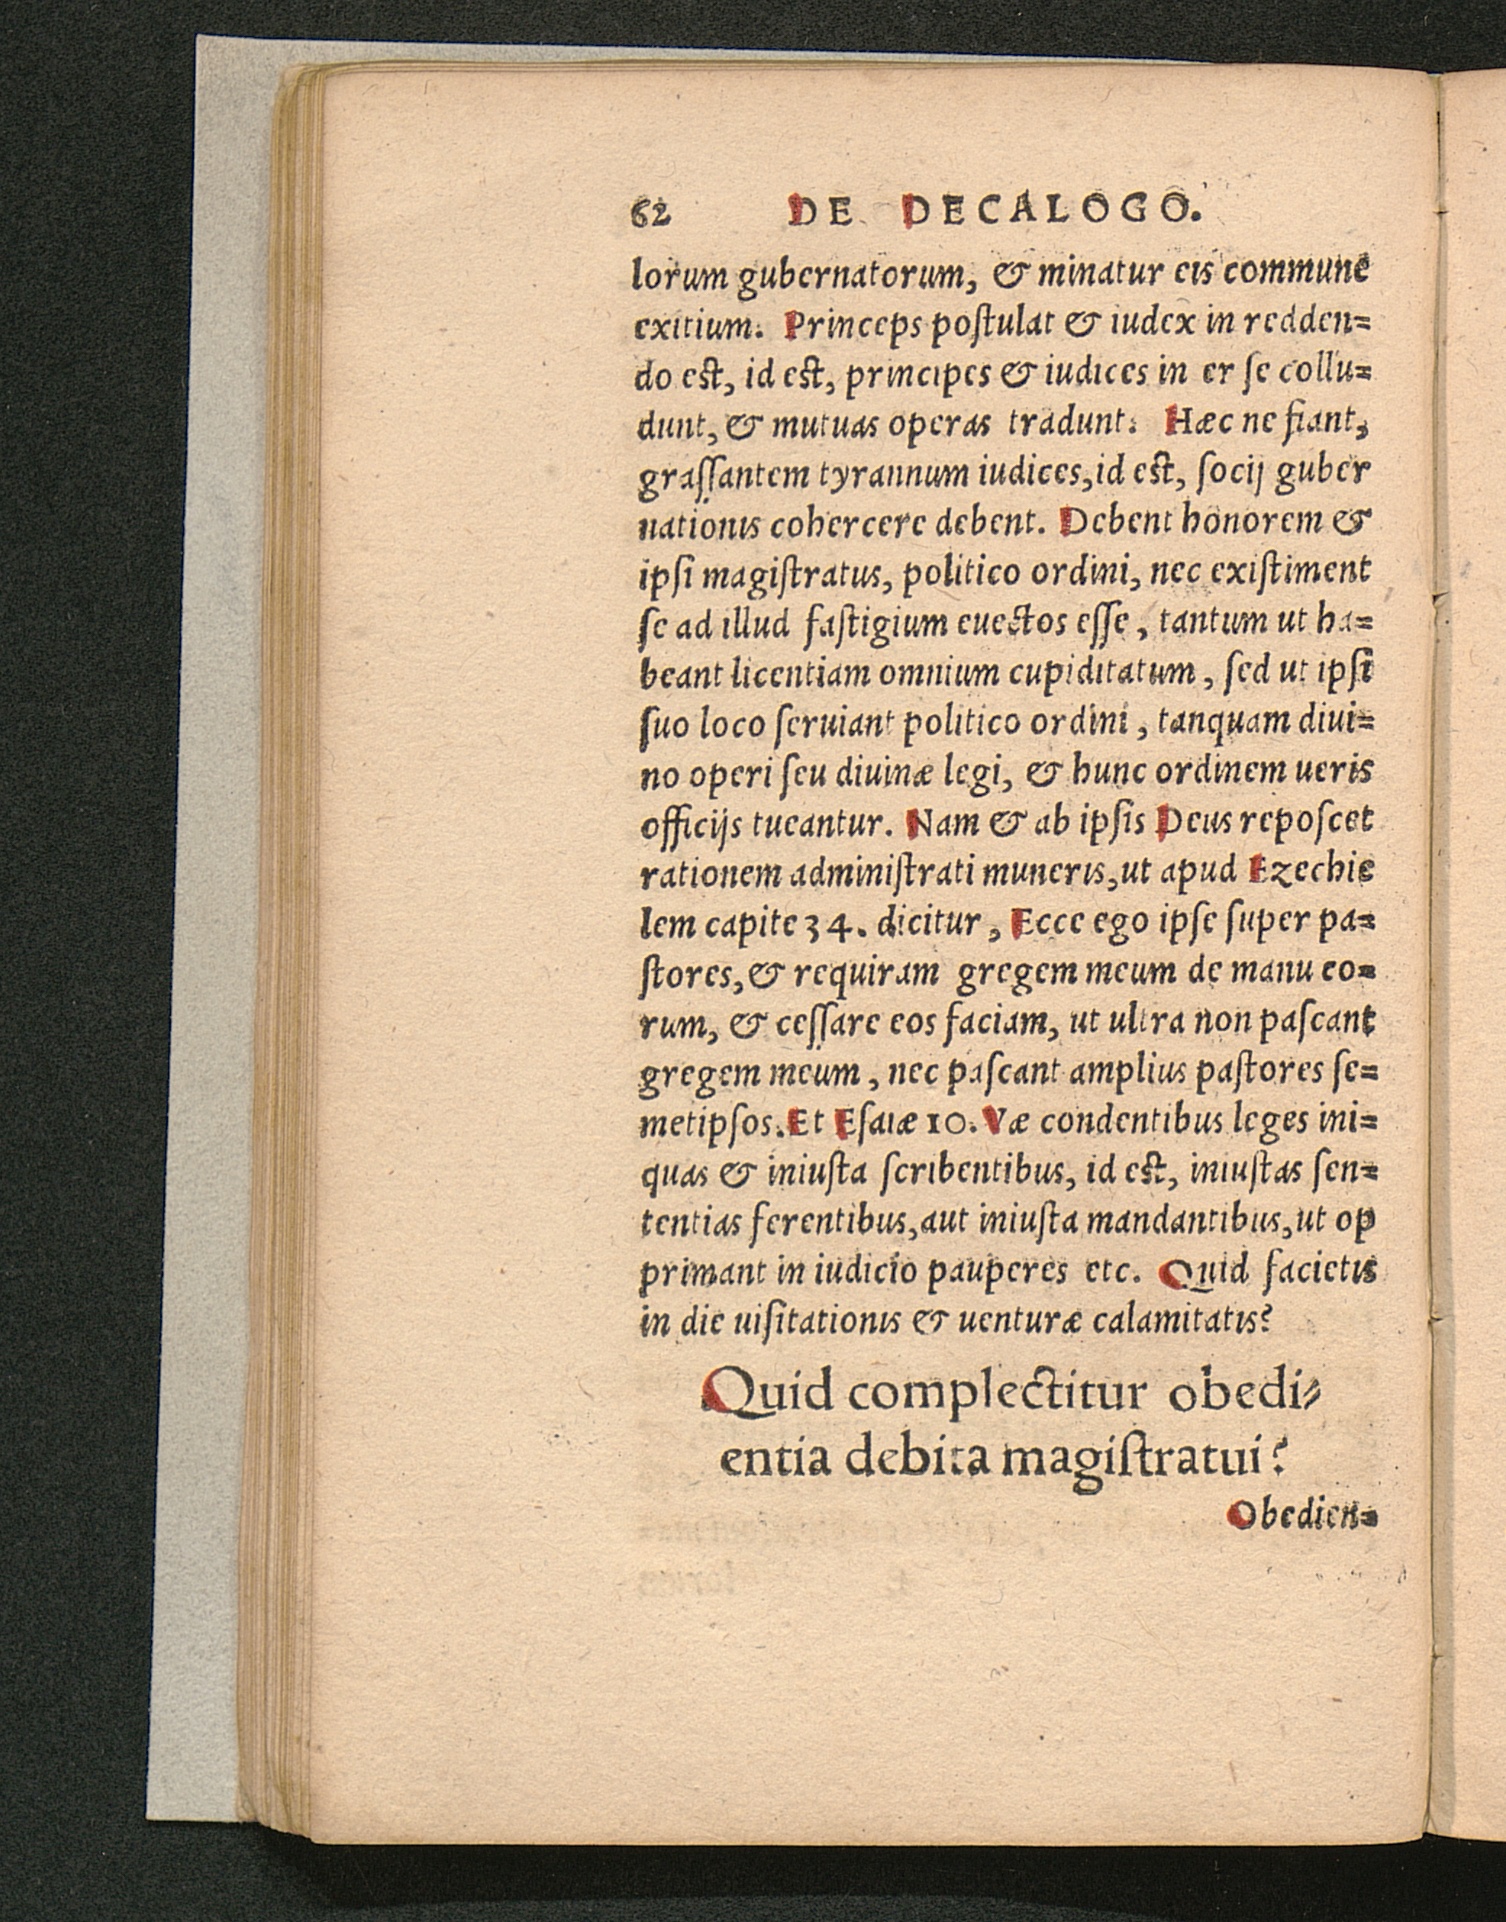 62 DE DECALOGO.
lorum gubernatorum, & minatur eis commune
exitium. Princeps poſtulat & iudex in redden=
do eſt, id eſt, principes & iudices in er ſe collu=
dunt, & mutuas operas tradunt. Hæc ne fiant,
graſſantem tyrannum iudices, id eſt, ſocij guber
nationis cohercere debent. Debent honorem &
ipſi magiſtratus, politico ordini, nec exiſtiment
ſe ad illud faſtigium euectos eſſe, tantum ut ha=
beant licentiam omnium cupiditatum, ſed ut ipſi
ſuo loco ſeruiant politico ordini, tanquam diui=
no operi ſeu diuinæ legi, & hunc ordinem ueris
officijs tueantur. Nam & ab ipſis Deus repoſcet
rationem adminiſtrati muneris, ut apud Ezechie
lem capite 34. dicitur, Ecce ego ipſe ſuper pa=
ſtores, & requiram gregem meum de manu eo=
rum, & ceſſare eos faciam, ut ultra non paſcant
gregem meum, nec paſcant amplius paſtores ſe=
metipſos. Et Eſaiæ 10. Væ condentibus leges ini=
quas & iniuſta ſcribentibus, id eſt, iniuſtas ſen=
tentias ferentibus, aut iniuſta mandantibus, ut op
primant in iudicio pauperes etc. Quid facietis
in die uiſitationis & uenturæ calamitatis?
Quid complectitur obedi=
entia debita magiſtratui?
Obedien=